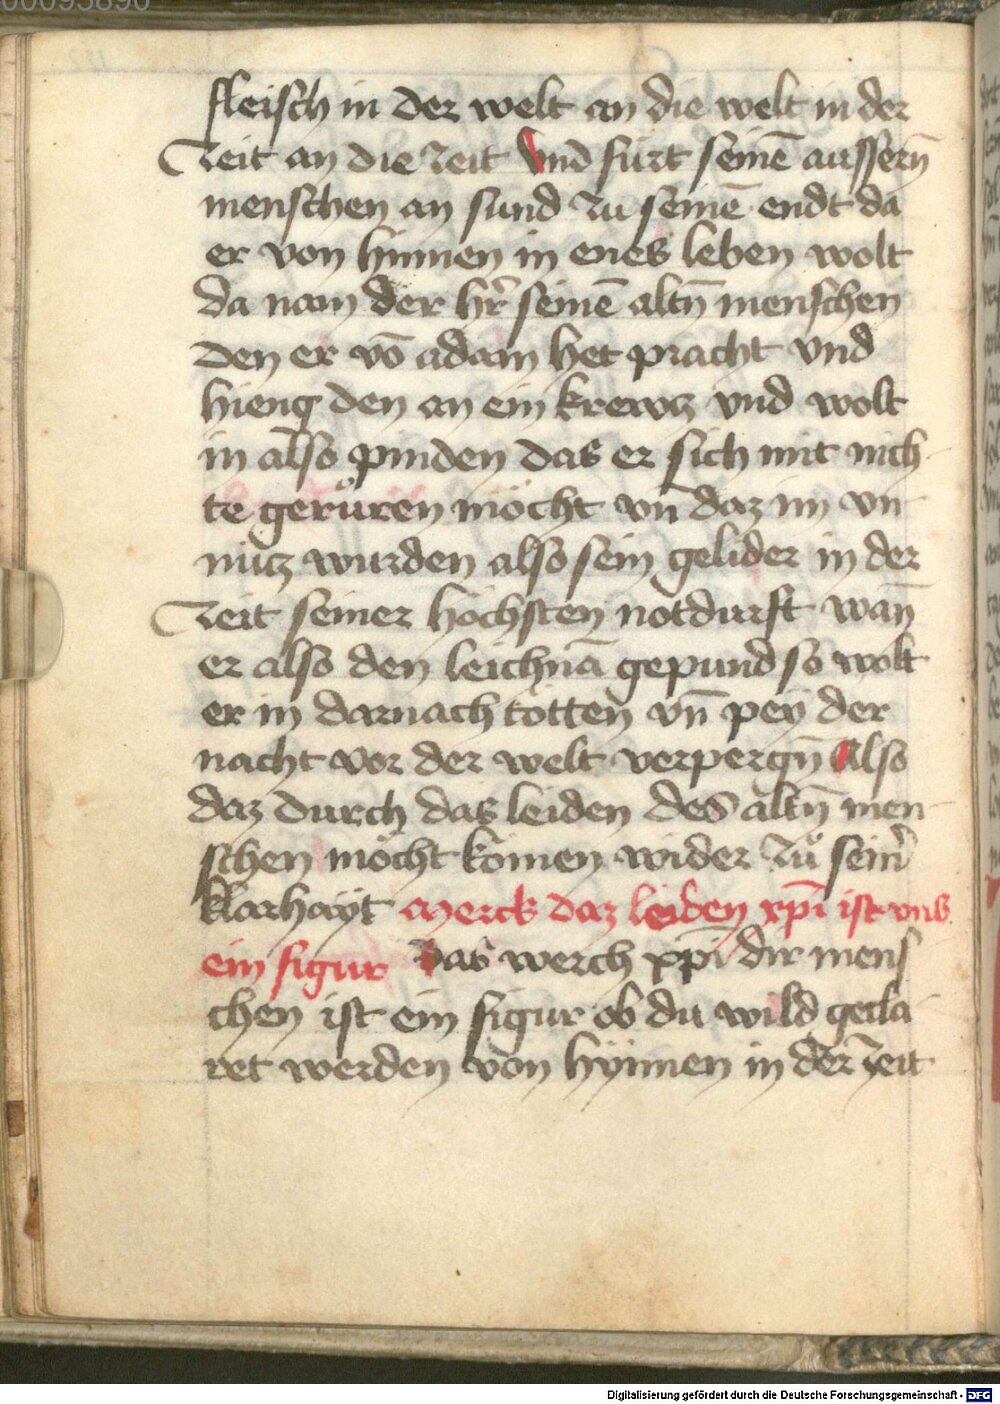 00095890
fleisch in der welt an die welt in der
Zeit an die zeit Vnd fürt seinē aussern̄
menschen an sund zu seinē endt da
er von hinnen in enes leben wolt
da nam der hr̄ seinē altn̄ menschen
den er vō adam het pracht vnd
hieng den an ein krewtz vnd wolt
in also pinden das er sich mit nich
te gerůren möcht vn̄ daz im vn
nütz wurden also sein gelider in der
Zeit seiner höchsten notdurft wan̄
er also den leichnā gepund so wolt
er in darnach tötten vn̄ pey der
nacht vor der welt verpergn̄ Also
daz durch das leiden des altn̄ men
schen möcht komen wider zů sein̄
klarhayt Merck daz leiden xp̄i ist vns
ein figur Das werch xp̄i dir mens
chen ist ein figur ob du wild gecla
ret werden von hynnen in der zeit
Digitalisierung gefördert durch die Deutsche Forschungsgemeinschaft - DFG